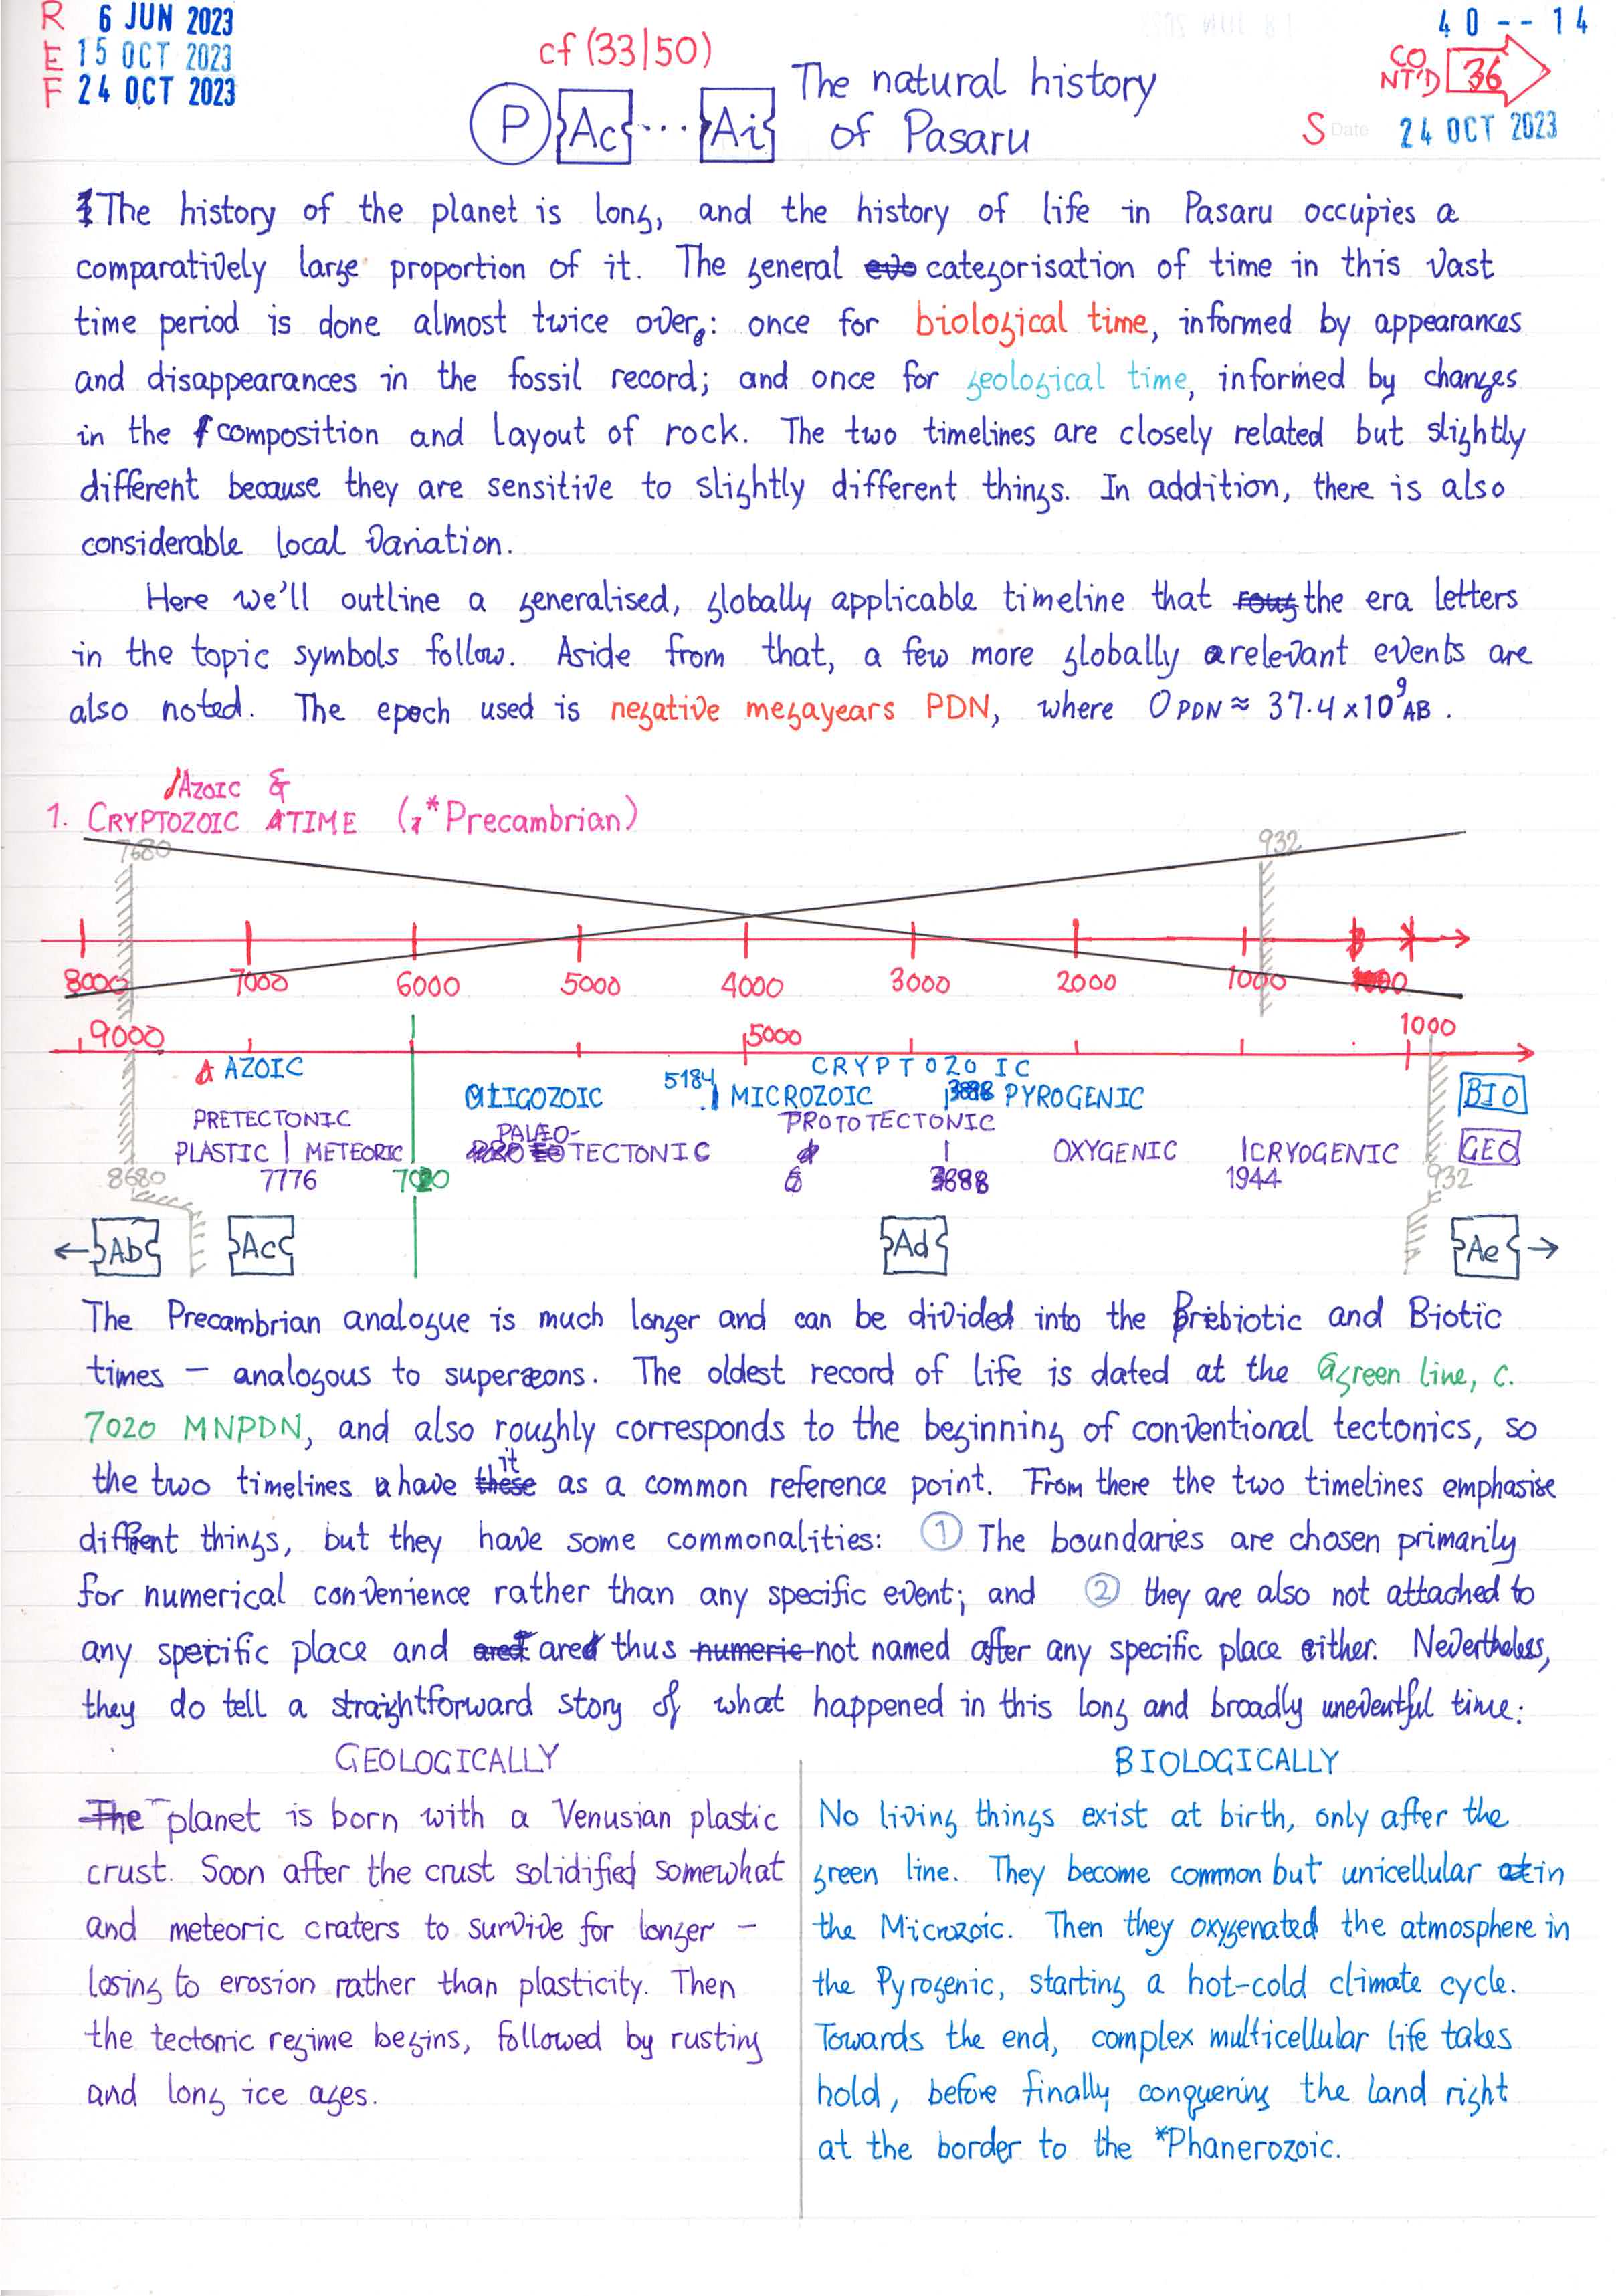 R 6 JUN 2023
E 15 OCT 2023
F 24 OCT 2023
40--14
cf (33|50)
CO
NT'D 36
P Ac ... Ai The natural history
of Pasaru
S Date 24 OCT 2023
The history of the planet is long, and the history of life in Pasaru occupies a
comparatively large proportion of it. The general evo categorisation of time in this vast
time period is done almost twice over: once for biological time, informed by appearances
and disappearances in the fossil record; and once for geological time, informed by changes
in the composition and layout of rock. The two timelines are closely related but slightly
different because they are sensitive to slightly different things. In addition, there is also
considerable local variation.
Here we'll outline a generalised, globally applicable timeline that the era letters
in the topic symbols follow. Aside from that, a few more globally relevant events are
also noted. The epoch used is negative megayears PDN, where 0 PDN ≈ 37.4 x10⁹ AB.
AZOIC &
1. CRYPTOZOIC TIME (*Precambrian)
7680 932
8000 7000 6000 5000 4000 3000 2000 1000
9000 5000 1000
AZOIC CRYPTOZOIC
OLIGOZOIC 5184 MICROZOIC PYROGENIC BIO
PRETECTONIC PALÆO- PROTOTECTONIC
PLASTIC | METEORIC TECTONIC OXYGENIC CRYOGENIC GEO
8680 7776 7020 1944 932
← Ab Ac Ad Ae →
The Precambrian analogue is much longer and can be divided into the Prebiotic and Biotic
times – analogous to superæons. The oldest record of life is dated at the green line, c.
7020 MNPDN, and also roughly corresponds to the beginning of conventional tectonics, so
the two timelines have these it as a common reference point. From there the two timelines emphasise
diffrent things, but they have some commonalities: ① The boundaries are chosen primarily
for numerical convenience rather than any specific event; and ② they are also not attached to
any specific place and are thus numeric not named after any specific place either. Nevertheless,
they do tell a straightforward story of what happened in this long and broadly uneventful time:
GEOLOGICALLY
The planet is born with a Venusian plastic
crust. Soon after the crust solidified somewhat
and meteoric craters to survive for longer –
losing to erosion rather than plasticity. Then
the tectonic regime begins, followed by rusting
and long ice ages.
BIOLOGICALLY
No living things exist at birth, only after the
green line. They become common but unicellular in
the Microzoic. Then they oxygenated the atmosphere in
the Pyrogenic, starting a hot-cold climate cycle.
Towards the end, complex multicellular life takes
hold, before finally conquering the land right
at the border to the *Phanerozoic.